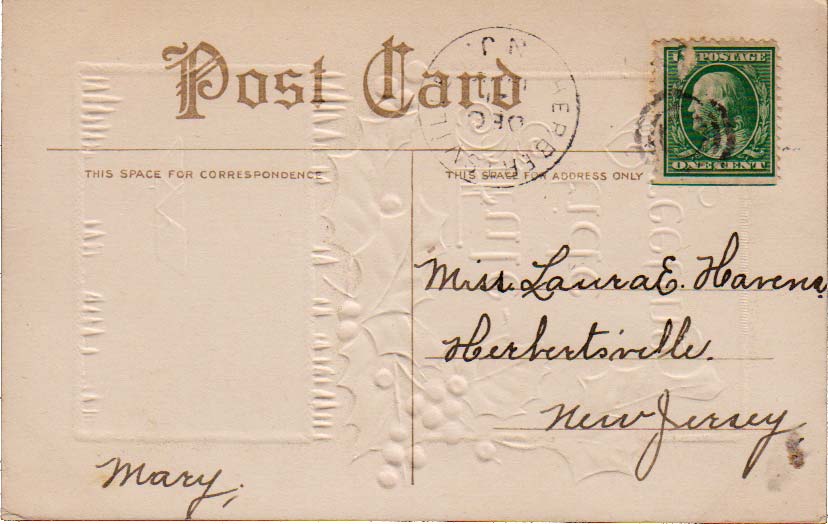 Post Card
N.J.
DEC
U.S. POSTAGE
ONE CENT
THIS SPACE FOR CORRESPONDENCE
THIS SPACE FOR ADDRESS ONLY
Miss. Laura E. Havens
Herbertsville.
New Jersey
Mary,